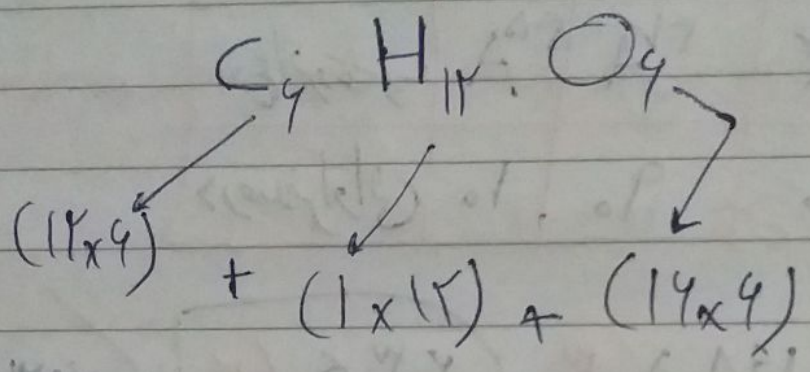 C۶ H۱۲ O۶
(۱۲×۶) + (۱×۱۲) + (۱۶×۶)